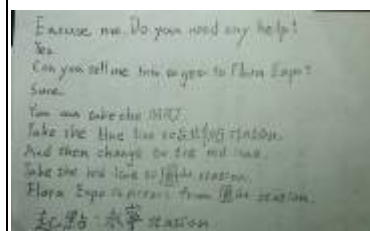 Excuse me. Do you need any help?
Yes.
Can you tell me how to get to Flora Expo?
Sure.
You can take the MRT.
Take the blue line to station.
And then change to the red line.
Take the red line to station.
Flora Expo is across from station.
起點：永寧 station